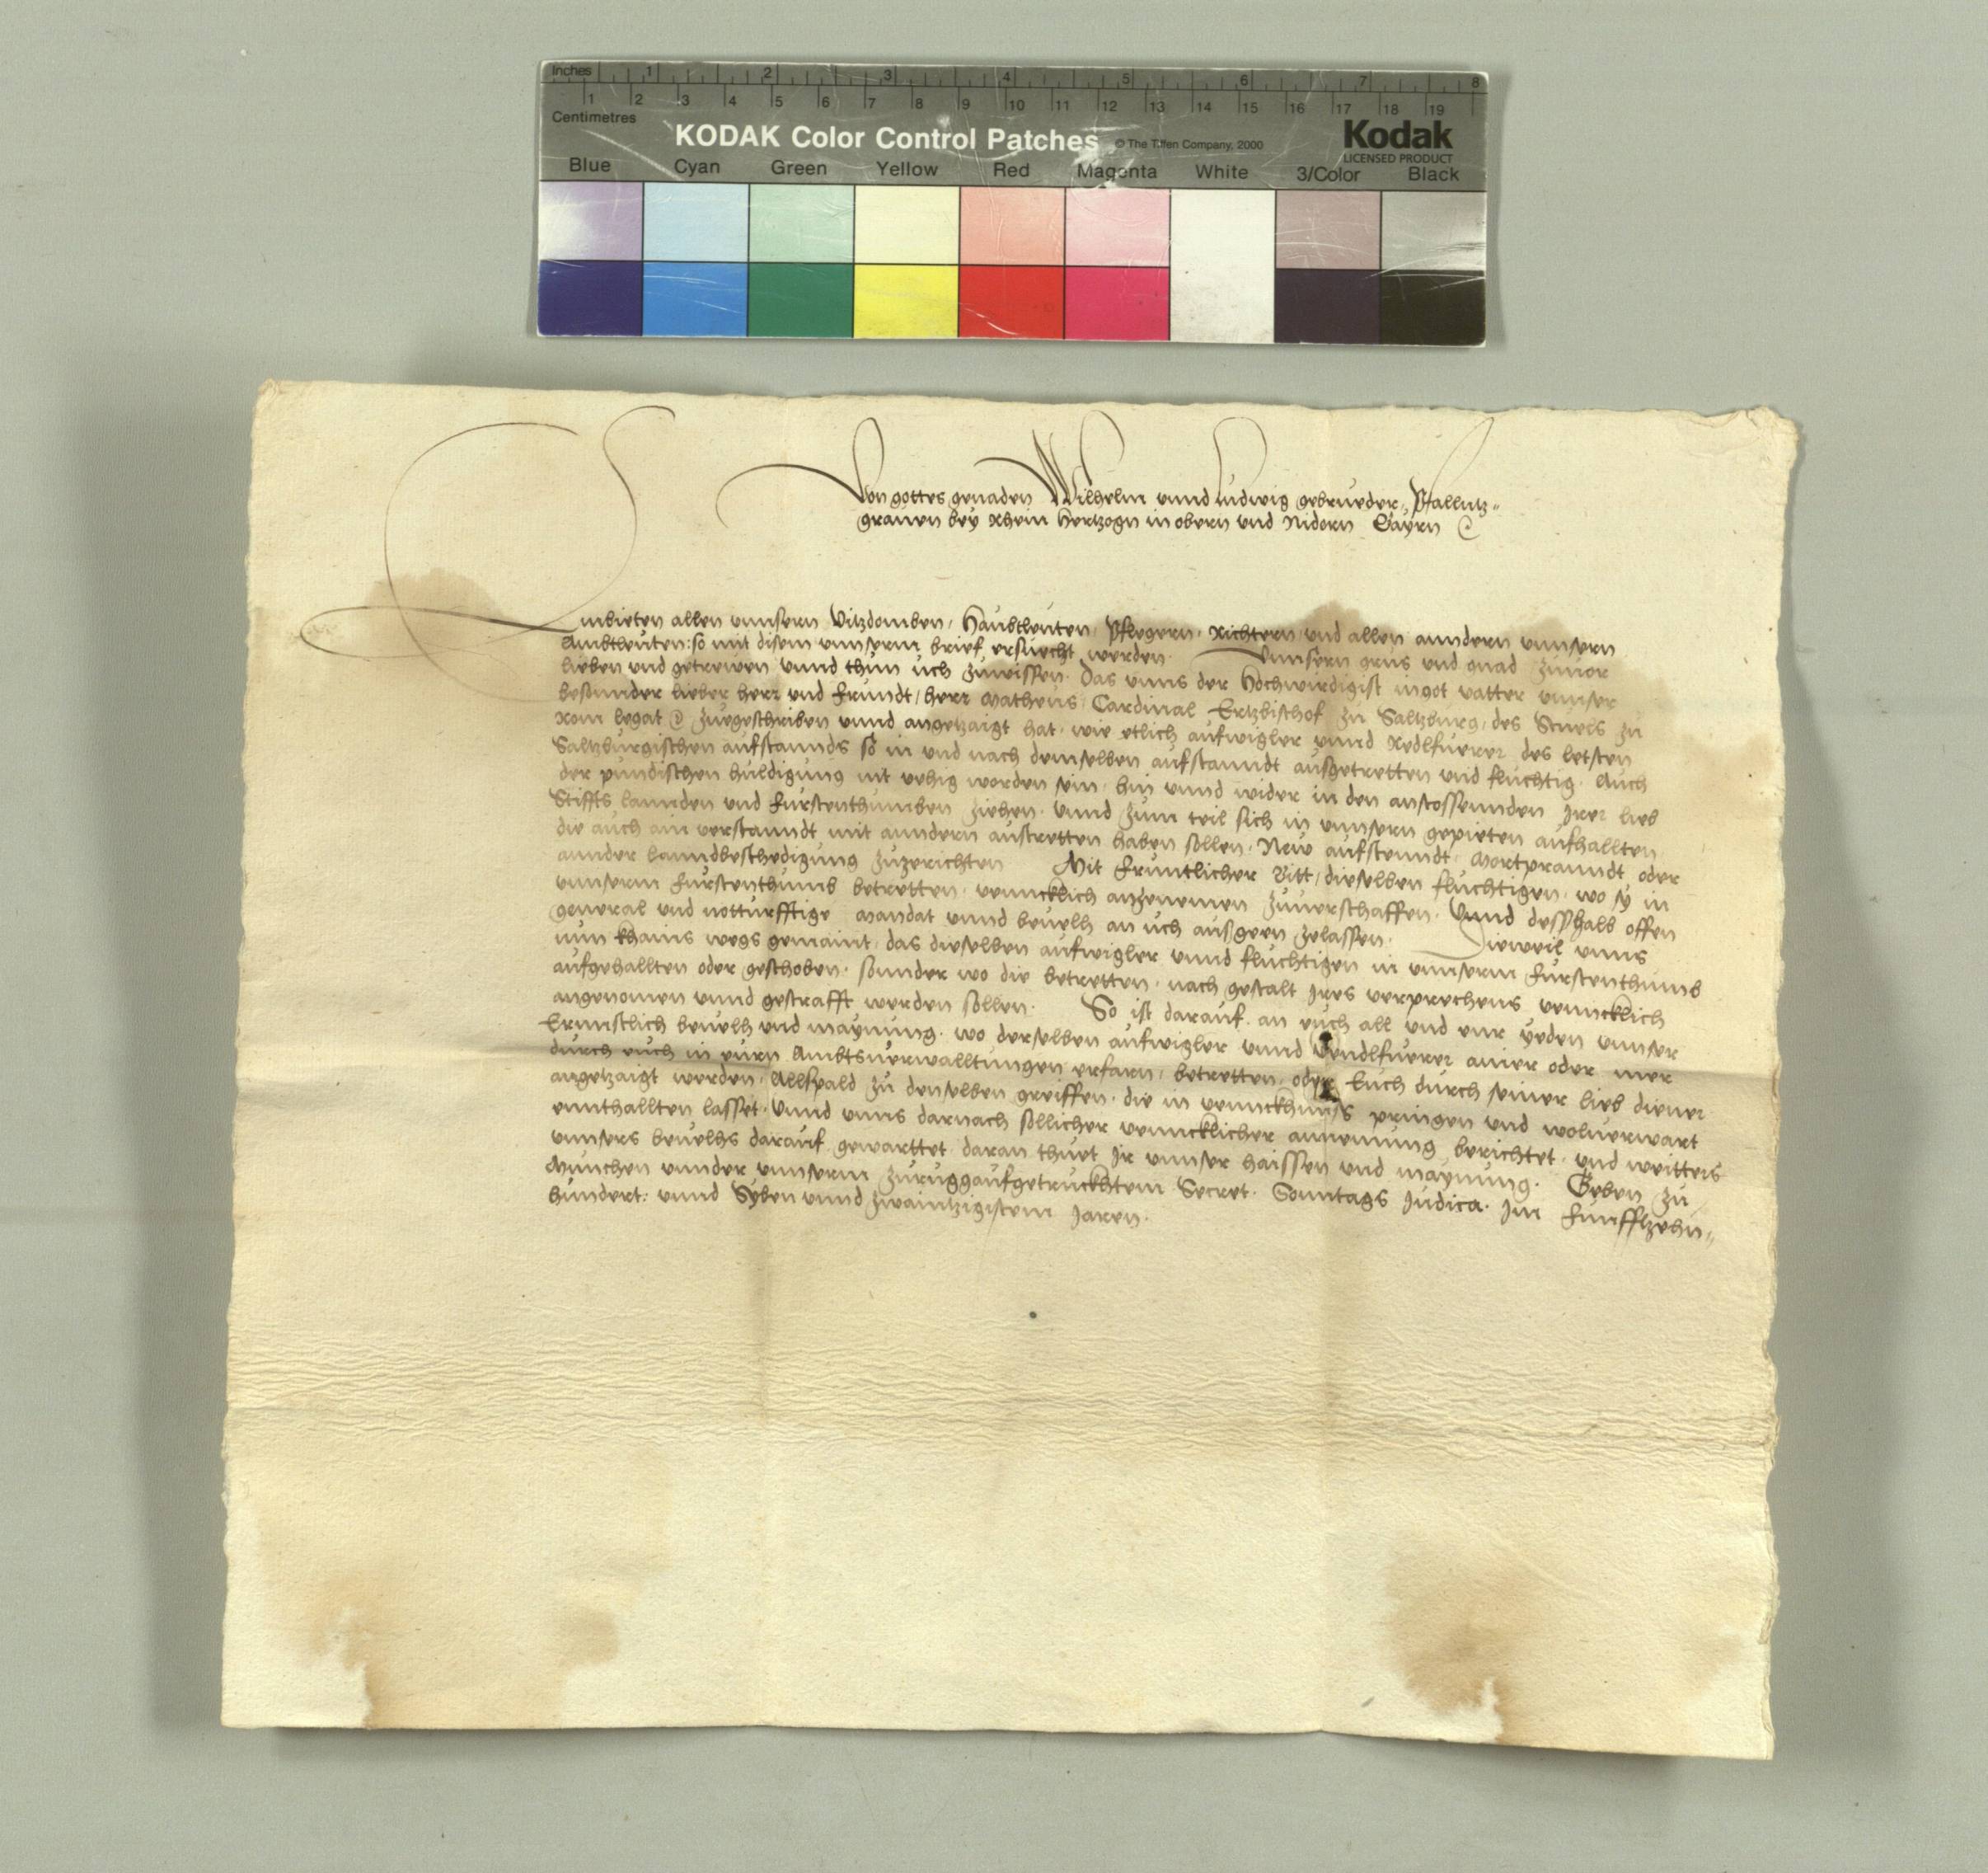 Inches 1 2 3 4 5 6 7 8
1 2 3 4 5 6 7 8 9 10 11 12 13 14 15 16 17 18 19
Centimetres
KODAK Color Control Patches © The Tiffen Company, 2000 Kodak
LICENSED PRODUCT
Blue Cyan Green Yellow Red Magenta White 3/Color Black
Von gottes genaden Wilhelm vnnd Ludwig gebrueder, Pfalltz-
grauen bey Rhein Hertzogn in obern vnd Nidern Bayrn
Embieten allen vnnsern Vitzdomben, Haubtleuten, Pflegern, Richtern, vnd allen anndern vnnsern
Ambtleuten: so mit disem vnnserm brief ersuecht werden. Vnnsern grus vnd gnad zuuor
lieben vnd getrewen vnnd thun uch zuwissen. Das vnns der Hochwirdigist in got vatter vnnser
besonnder lieber herr vnd frundt, herr Matheus, Cardinal Ertzbischof zu Saltzburg, des Stuels zu
Rom legat zuegeschriben vnnd angetzaigt hat, wie etlich aufwigler vnnd Redlfuerer des letsten
Saltzburgischen aufstannds so in vnd nach demselben aufstanndt ausgetretten vnd fluchtig. Auch
der pundischen huldigung nit vehig worden sein, hin vnnd wider in den anstossennden Irer lieb
Stiffts lannden vnd furstenthumben ziehen, vnnd zum teil sich in vnnsern gepieten aufhallten
die auch ain verstanndt mit anndern austretten haben sollen. New aufstenndt, Mortpranndt oder
annder lanndbeschedigung zuzerichten Mit fruntlicher Bitt, dieselben fluchtigen, wo sy in
vnnserm furstenthumb betretten, venncklich anzenemen zuuerschaffen. Vnnd desshalb offen
general vnd notturfftige Mandat vnnd beuelh an uch aussgeen zelassen. Dieweil vnns
nun khains wegs gemaint, das dieselben aufwigler vnnd fluchtigen in vnnserm furstenthumb
aufgehallten oder geschoben, sonnder wo die betretten, nach gestalt Ires verprechens venncklich
angenomen vnnd gestrafft werden sollen. So ist darauf an euch all vnd eur yeden vnnser
Ernnstlich beuelh vnd maynung, wo derselben aufwigler vnnd Redlfuerer ainer oder mer
durch euch in eurn Ambtsuerwalltungen erfarn, betretten, oder Euch durch seiner lieb diener
angetzaigt werden, Allspald zu denselben greiffen, die in vennckhnuss pringen vnd woluerwart
ennthallten lasset. Vnnd vnns darnach sollicher venncklicher annemung berichtet, vnd weitters
vnnsers beuelhs darauf gewarttet, daran thuet Ir vnnser haissen vnd maynung. Geben zu
Munchen vnnder vnnserm zuruggaufgetruckhtem Secret. Sonntags Judica. Im funfftzehn-
hundert: vnnd Syben vnnd zwaintzigistem Jaren.